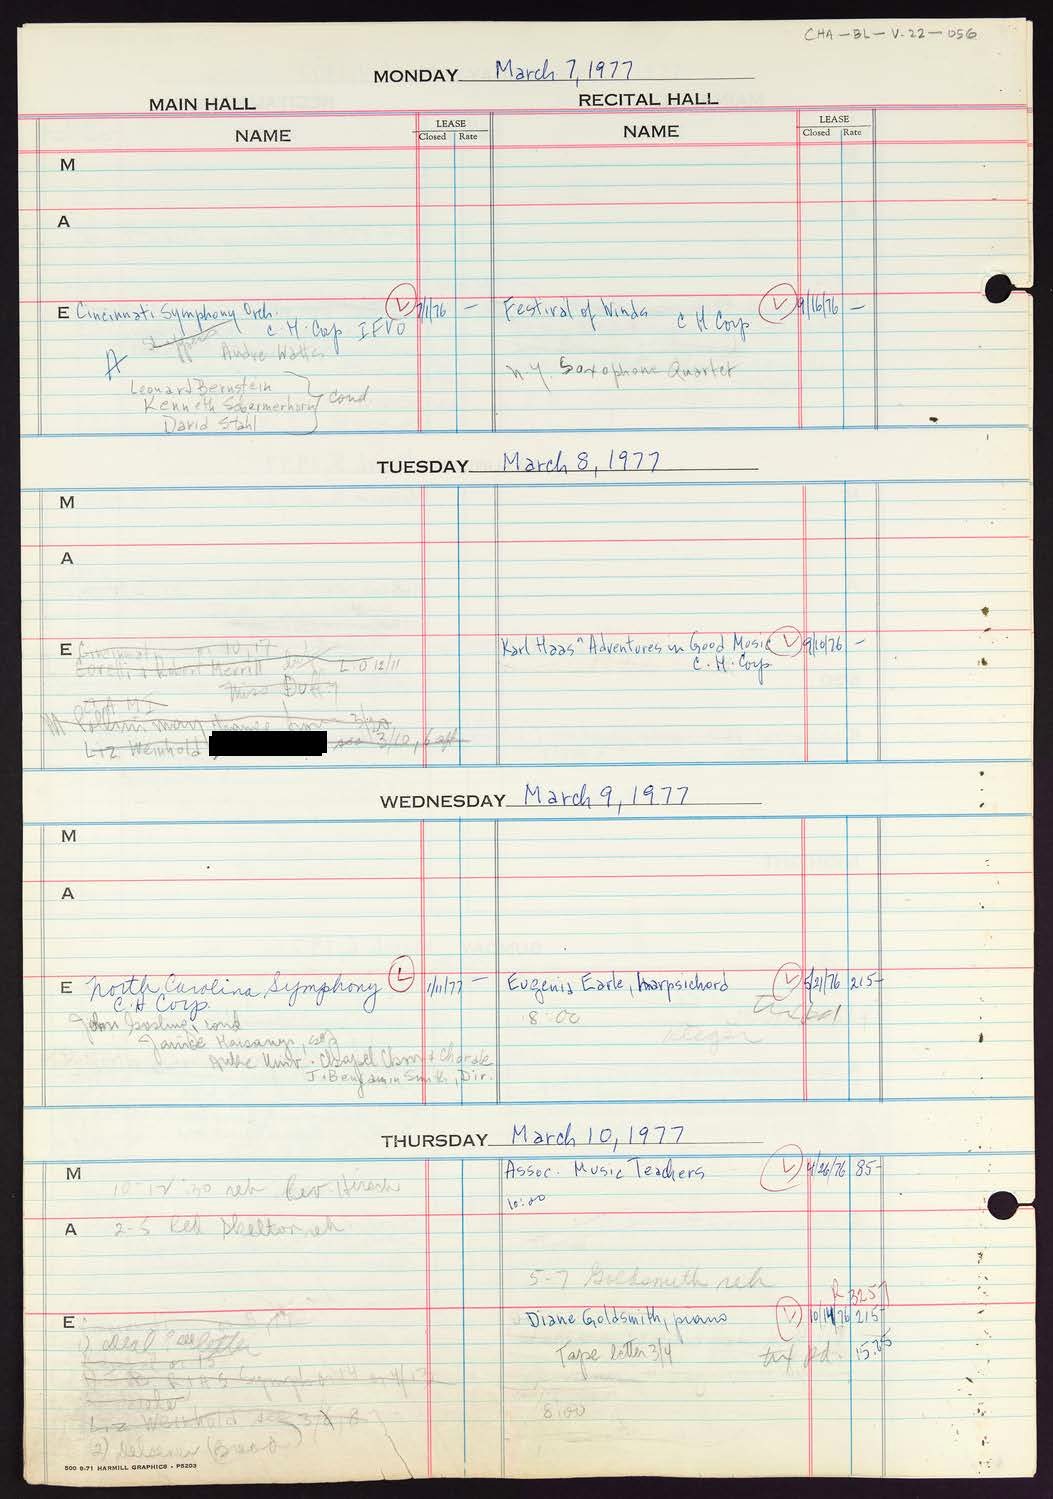 CHA-BL-V-22-056
MONDAY March 7, 1977
MAIN HALL RECITAL HALL
NAME LEASE Closed Rate NAME LEASE Closed Rate
M
A
E Cincinnati Symphony Orch. L 7/1/76 — Festival of Winds L 9/16/76 —
C.H. Corp IFVO C H Corp
A Andre Watts N.Y. Saxophone Quartet
Leonard Bernstein
Kenneth Schermerhorn } cond
David Stahl
TUESDAY March 8, 1977
M
A
E Karl Haas "Adventures in Good Music L 9/10/76 —
C. H. Corp
Corelli & Robert Merrill L.O 12/11
Miss Duffy
M Pollini may change from 3/20
Liz Weinhold see 3/10,
WEDNESDAY March 9, 1977
M
A
E North Carolina Symphony L 1/11/77 — Eugenia Earle, harpsichord L 5/21/76 215-
C.H Corp 8:00
John Gosling, cond
Janice Harsanyi, sop
Duke Univ. Chapel Choir & Chorale
J. Benjamin Smith, Dir.
THURSDAY March 10, 1977
M Assoc. Music Teachers L 4/26/76 85-
10-12:30 reh Rev. Hirsch 10:00
A 2-5 Red Skelton reh
5-7 Goldsmith reh
R 325
E Diane Goldsmith, piano L 10/14/76 215-
Tape letter 3/4 tax pd.
Liz Weinhold see 3/8
8:00
500 8-71 HARMILL GRAPHICS - P5203